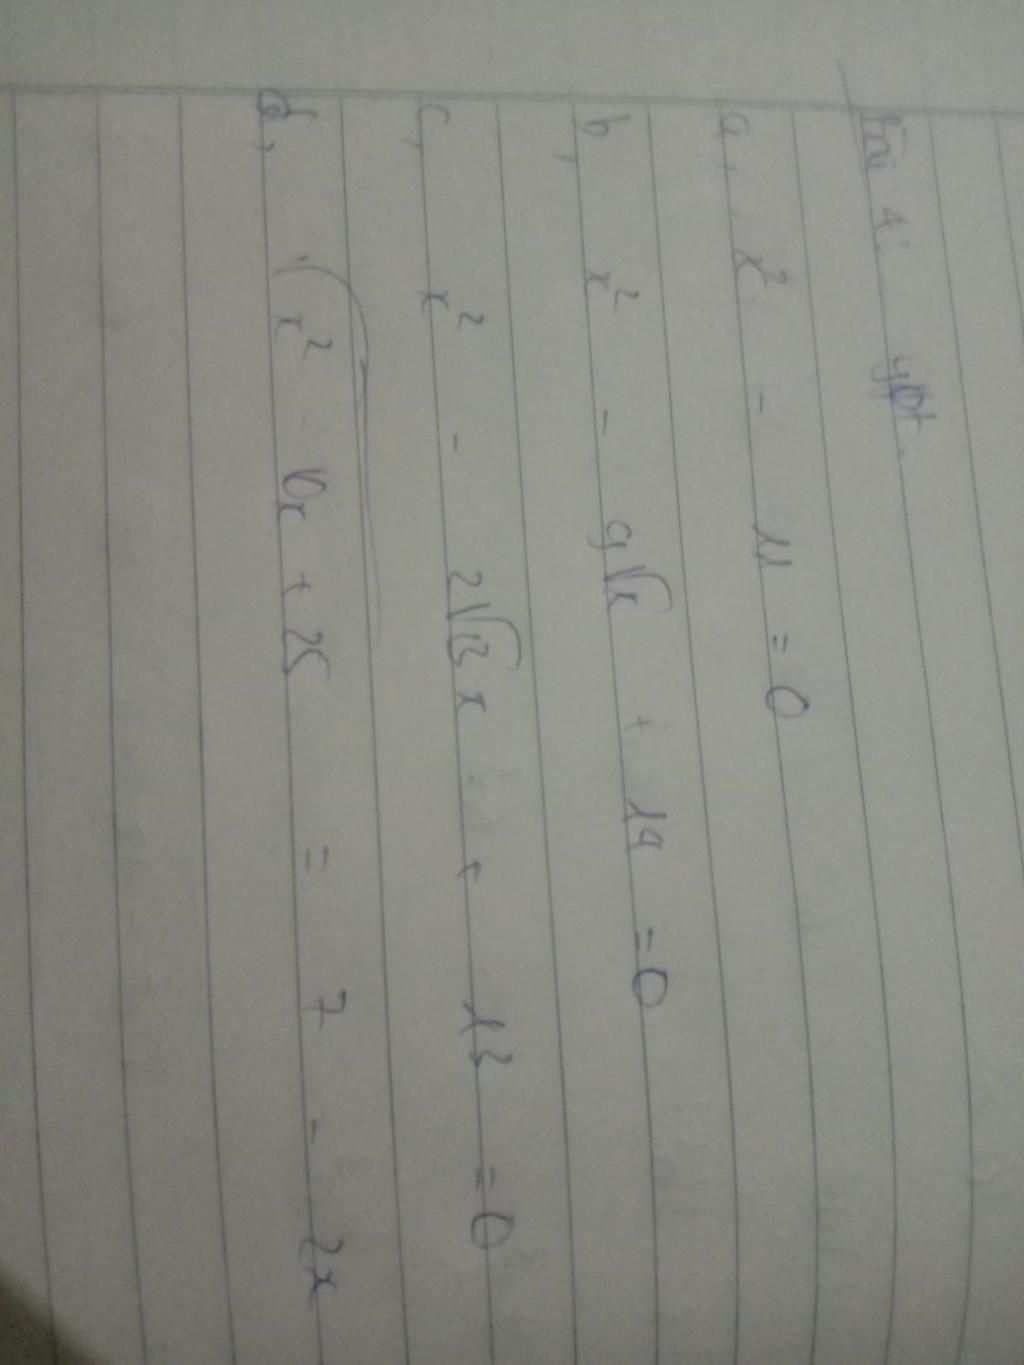 Bài 4: gpt.
a, x² - 11 = 0
b, x² - 9√x + 14 = 0
c, x² - 2√13 x + 13 = 0
d, √x² - 10x + 25 = 7 - 2x